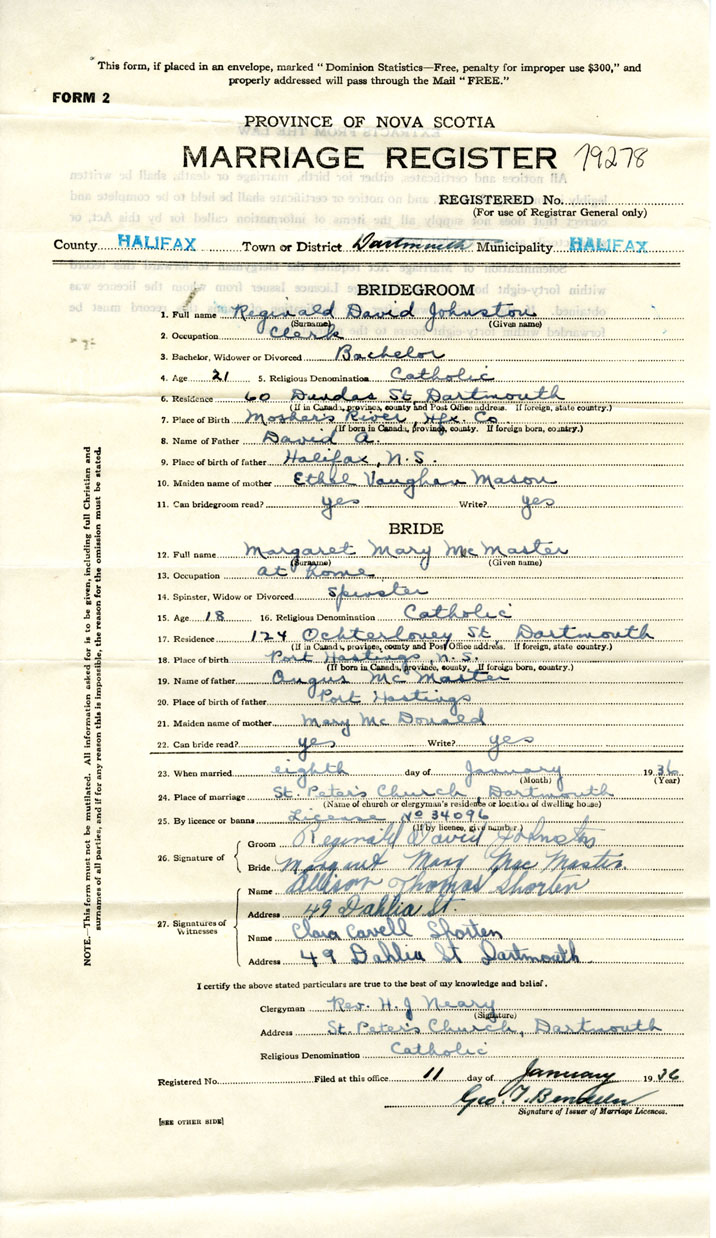 "This form, if placed in an envelope, marked "Dominion Statistics—Free, penalty for improper use $300," and
properly addressed will pass through the Mail "FREE."
FORM 2
PROVINCE OF NOVA SCOTIA
MARRIAGE REGISTER 79278
REGISTERED No.
(For use of Registrar General only)
County HALIFAX Town or District Dartmouth Municipality HALIFAX
BRIDEGROOM
1. Full name Reginald David Johnston
(Surname) (Given name)
2. Occupation Clerk
3. Bachelor, Widower or Divorced Bachelor
4. Age 21 5. Religious Denomination Catholic
6. Residence 60 Dundas St Dartmouth
(If in Canada, province, county and Post Office address. If foreign, state country.)
7. Place of Birth Mosher's River, Hfx. Co.
(If born in Canada, province, county. If foreign born, country.)
8. Name of Father David A.
9. Place of birth of father Halifax, N.S.
10. Maiden name of mother Ethel Vaughan Mason
11. Can bridegroom read? yes Write? yes
BRIDE
12. Full name Margaret Mary McMaster
(Surname) (Given name)
13. Occupation at home
14. Spinster, Widow or Divorced Spinster
15. Age 18 16. Religious Denomination Catholic
17. Residence 124 Ochterloney St Dartmouth
(If in Canada, province, county and Post Office address. If foreign, state country.)
18. Place of birth Port Hastings, N.S.
(If born in Canada, province, county. If foreign born, country.)
19. Name of father Angus McMaster
20. Place of birth of father Port Hastings
21. Maiden name of mother Mary McDonald
22. Can bride read? yes Write? yes
23. When married eighth day of January 1936
(Month) (Year)
24. Place of marriage St. Peter's Church, Dartmouth
(Name of church or clergyman's residence or location of dwelling house)
25. By licence or banns License No 34096
(If by licence, give number.)
26. Signature of
Groom Reginald David Johnston
Bride Margaret Mary MacMaster
27. Signatures of Witnesses
Name Allison Thomas Shorten
Address 49 Dahlia St.
Name Clara Cavell Shorten
Address 49 Dahlia St Dartmouth
I certify the above stated particulars are true to the best of my knowledge and belief.
Clergyman Rev. H. J Neary
(Signature)
Address St. Peter's Church, Dartmouth
Religious Denomination Catholic
Registered No. Filed at this office 11 day of January 1936
Geo. T.
Signature of Issuer of Marriage Licences.
[SEE OTHER SIDE]
NOTE.—This form must not be mutilated. All information asked for is to be given, including full Christian and
surnames of all parties, and if for any reason this is impossible, the reason for the omission must be stated.